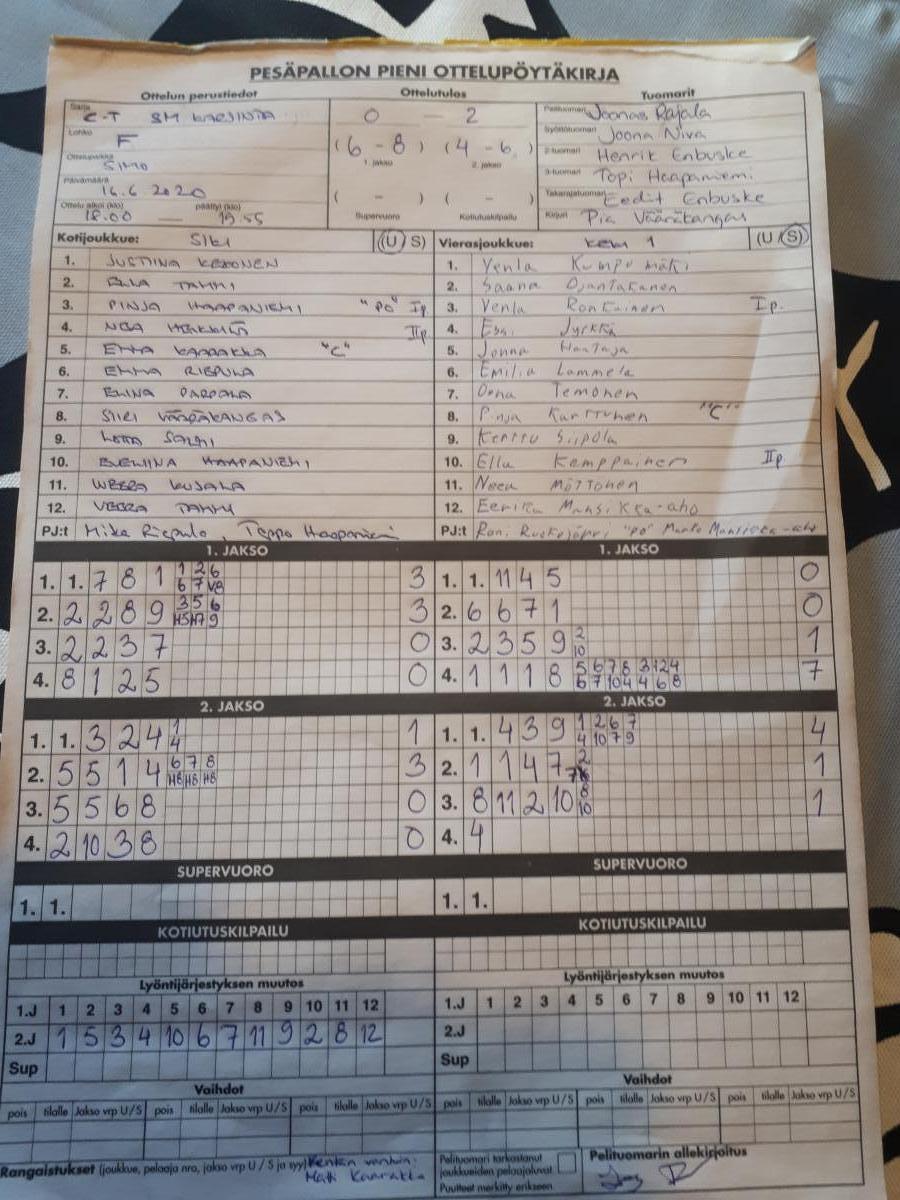 PESÄPALLON PIENI OTTELUPÖYTÄKIRJA
Ottelun perustiedot Ottelutulos Tuomarit
Sarja C-T SM KARSINTA 0 - 2 Pelituomari Joonas Rajala
Lohko F (6 - 8) (4 - 6) Syöttötuomari Joona Niva
1. jakso 2. jakso 2-tuomari Henrik Enbuske
Ottelupaikka SIMO 3-tuomari Topi Haapaniemi
Päivämäärä 16.6.2020 ( - ) ( - ) Takarajatuomari Eedit Enbuske
Ottelu alkoi (klo) 18.00 päättyi (klo) 19.55 Supervuoro Kotiutuskilpailu Kirjuri Pia Vääräkangas
Kotijoukkue: SiKi (U S) Vierasjoukkue: KeKi 1 (U / S)
1. JUSTIINA KEKONEN 1. Venla Kumpumäki
2. ELLA TAMMI 2. Saana Ojantakanen
3. PINJA HAAPANIEMI "PO" Ip. 3. Venla Rontkainen Ip.
4. NEA IIp 4. Essi Jyrkkä
5. EMMA KAARAKKA "C" 5. Jonna Hantaja
6. EMMA RIEPULA 6. Emilia Lammela
7. ELINA PAPPALA 7. Oona Temonen
8. SIIRI VÄÄRÄKANGAS 8. Pinja Karttunen "C"
9. LOTTA SALMI 9. Kerttu Siipola
10. EVELIINA HAAPANIEMI 10. Ella Kemppainen IIp.
11. WEERA KUJALA 11. Neea Möttönen
12. VEERA TAMMI 12. Eerika Mansikka-aho
PJ:t Mika Riepula, Teppo Haapaniemi PJ:t Roni "PO" Mansikka-aho
1. JAKSO 1. JAKSO
1. 1. 7 8 1 1 2 6 3 1. 1. 11 4 5 0
6 7 V8
2. 2 2 8 9 3 5 6 3 2. 6 6 7 1 0
H5 H7 9
3. 2 2 3 7 0 3. 2 3 5 9 2 1
10
4. 8 1 2 5 0 4. 1 1 1 8 5 6 7 8 3 1 2 4 7
6 7 10 4 4 6 8
2. JAKSO 2. JAKSO
1. 1. 3 2 4 1 1 1. 1. 4 3 9 1 2 6 7 4
4 4 10 7 9
2. 5 5 1 4 6 7 8 3 2. 1 1 4 7 2 1
H8 H8 H8
3. 5 5 6 8 0 3. 8 11 2 10 8 1
10
4. 2 10 3 8 0 4. 4
SUPERVUORO SUPERVUORO
1. 1. 1. 1.
KOTIUTUSKILPAILU KOTIUTUSKILPAILU
Lyöntijärjestyksen muutos Lyöntijärjestyksen muutos
1.J 1 2 3 4 5 6 7 8 9 10 11 12 1.J 1 2 3 4 5 6 7 8 9 10 11 12
2.J 1 5 3 4 10 6 7 11 9 2 8 12 2.J
Sup Sup
Vaihdot Vaihdot
pois tilalle Jakso vrp U/S pois tilalle Jakso vrp U/S pois tilalle Jakso vrp U/S pois tilalle Jakso vrp U/S pois tilalle Jakso vrp U/S pois tilalle Jakso vrp U/S
Rangaistukset (joukkue, pelaaja nro, jakso vrp U / S ja syy) Kentän vanhin: Pelituomari tarkastanut Pelituomarin allekirjoitus
Matti Kaarakka joukkueiden pelaajaluvat
Puutteet merkitty erikseen